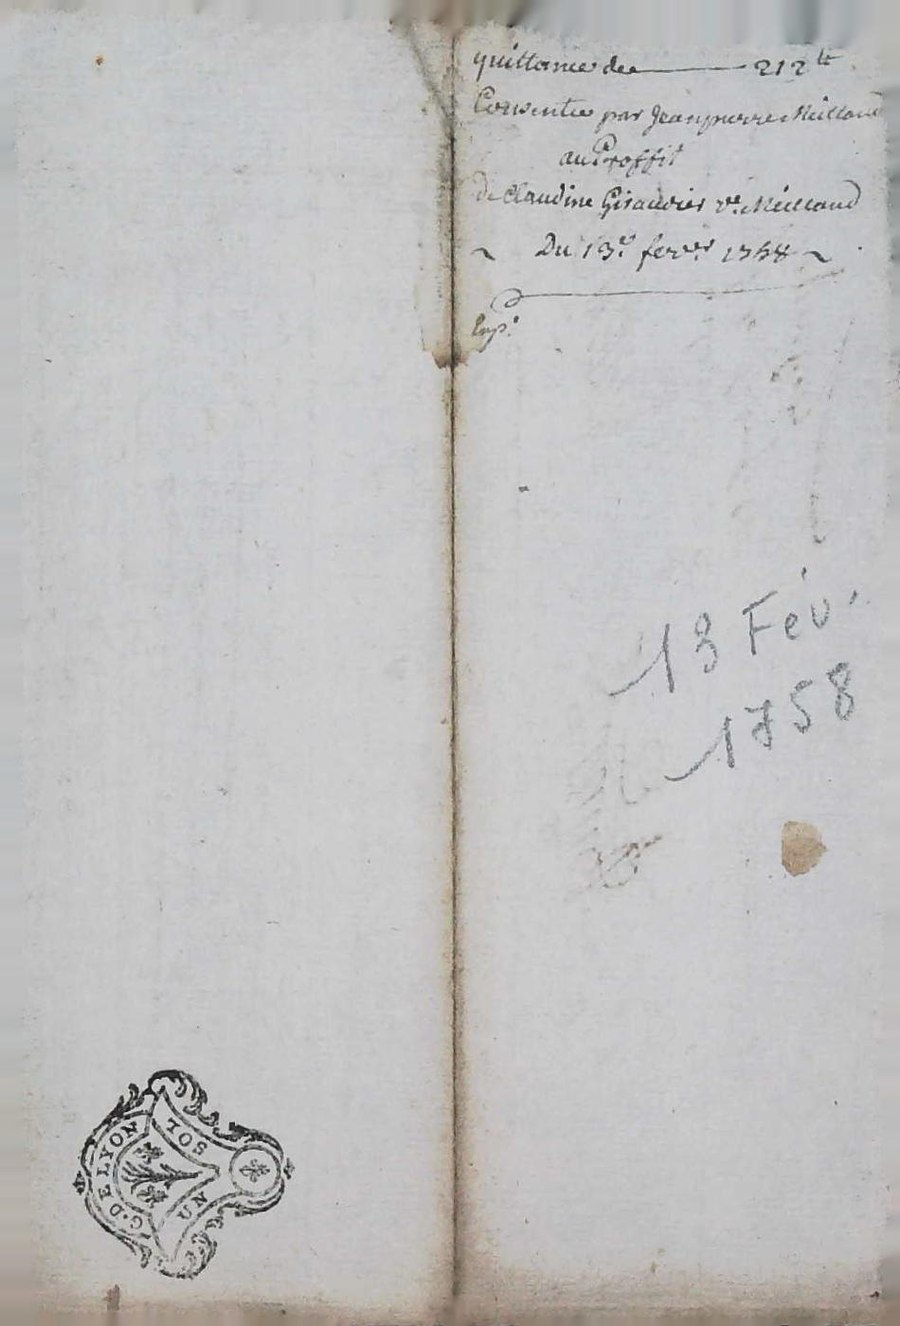 quittance de 212 lt
Consentie par Jean pierre Meillaud
au Proffit
de Claudine Giraudier ve. Meillaud
~ Du 13e. fevrer 1758 ~
Exp.
13 Fév.
1758
G. DE LYON
UN SOL